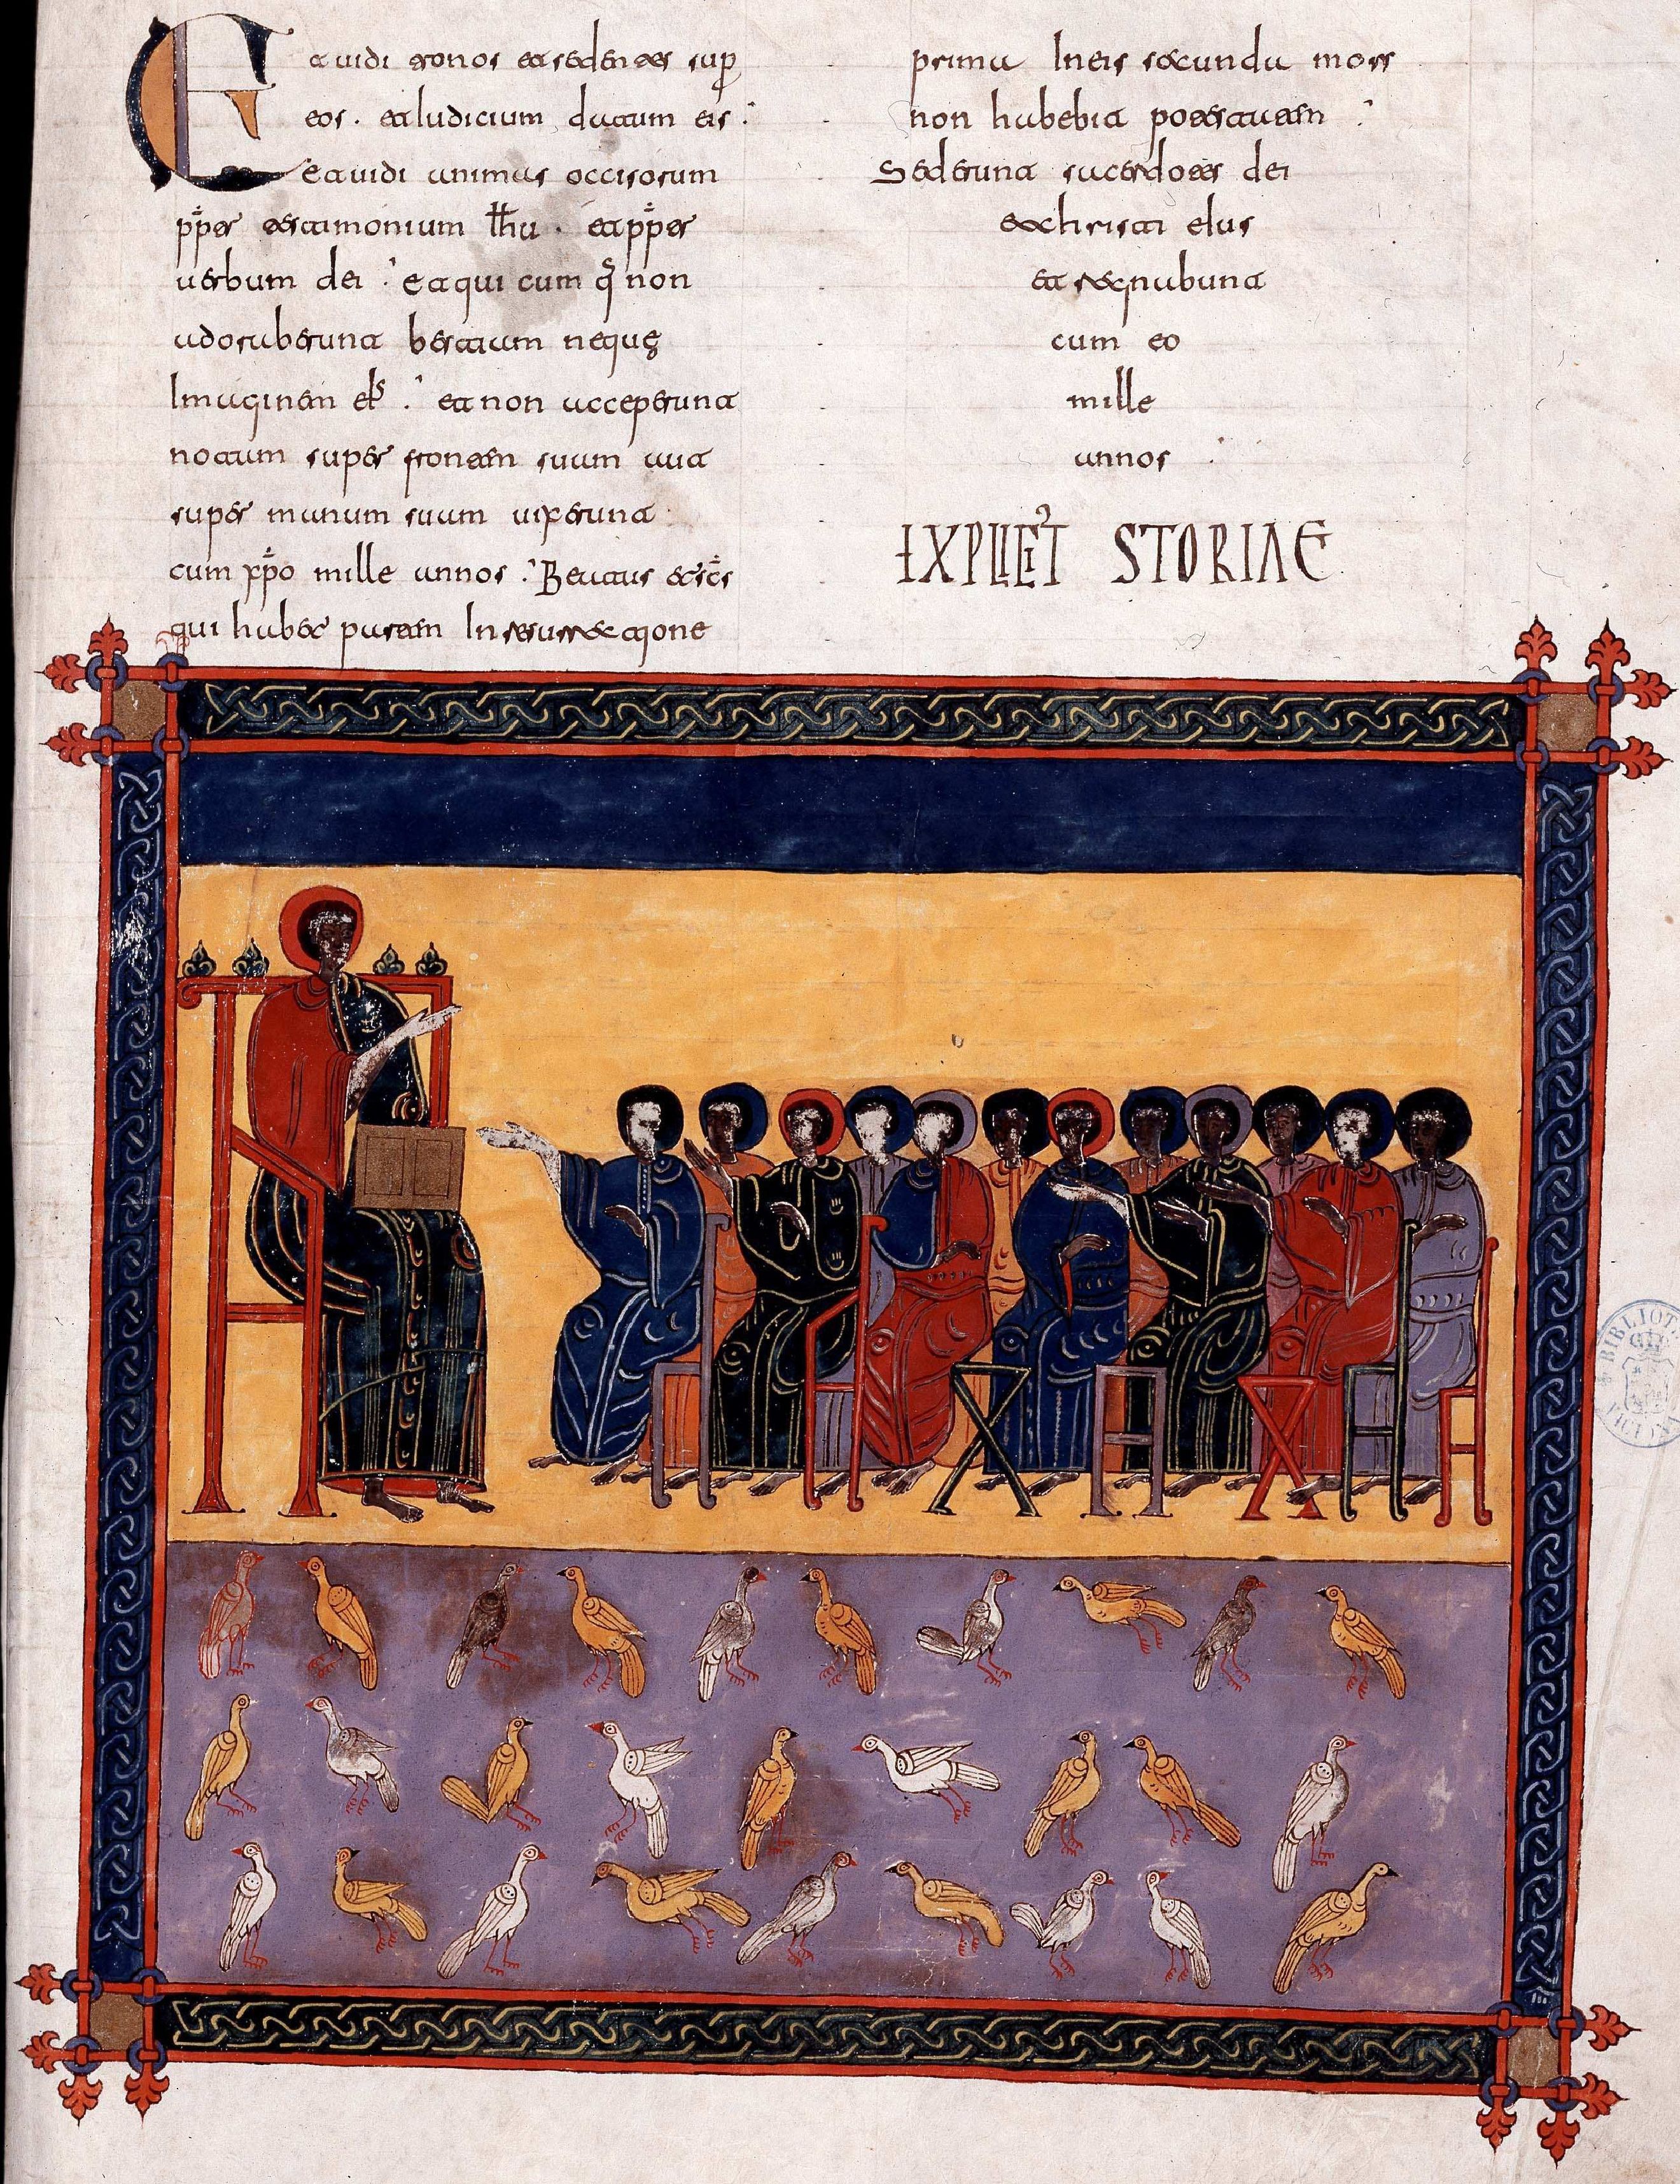 Et uidi tronos et sedentes sup
eos. et Iudicium datum eis
et uidi animas occisorum
ppter testimonium Ihu. et ppter
uerbum dei. et qui cum q non
adoraberunt bestiam neque
Imaginem eIs. et non acceperunt
notam super frontem suam aut
super manum suam uixerunt
cum xpo mille annos. Beatus et scs
qui habet partem In resurrectione
prima In eis secunda mors
non habebit potestatem
Sed erunt sacerdotes dei
et christi eIus
et regnabunt
cum eo
mille
annos
EXPLICIT STORIAE